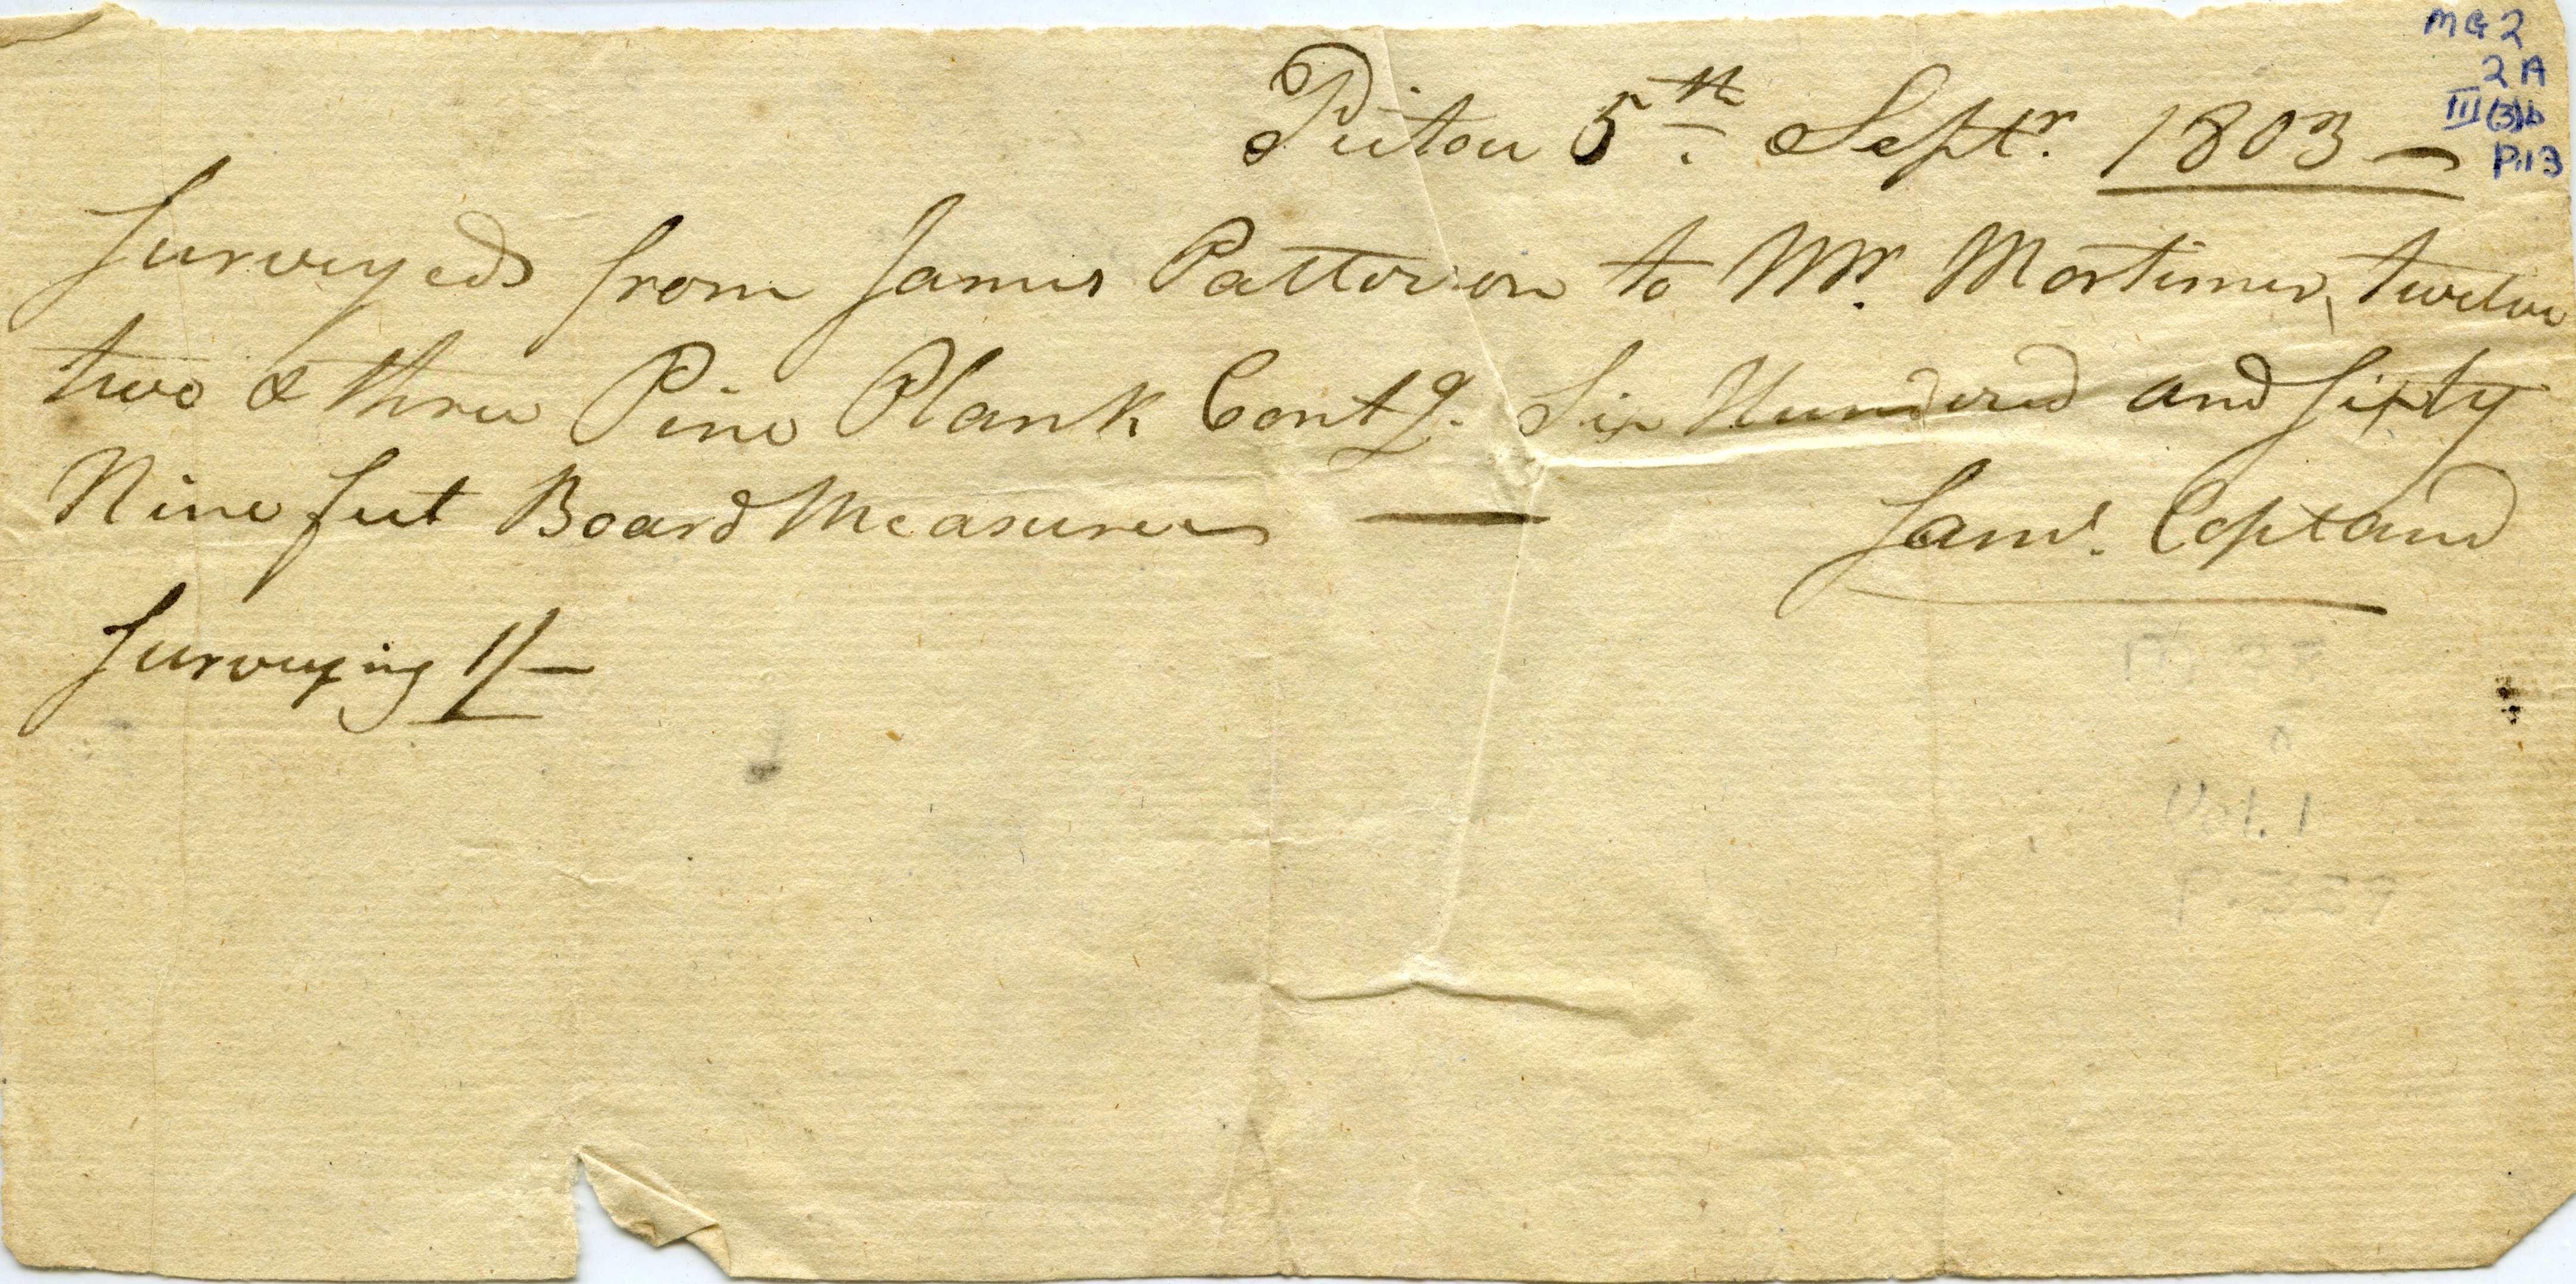 MG2
2A
III(3)b
P.113
Pictou 5th. Septr. 1803 —
Surveyed from James Patterson to Mr. Mortimer, twelve
two & three Pine Plank Contg. Six Hundred and sixty
Nine feet Board Measure —
Jams. Copland
Surveying 1/-
Vol. 1